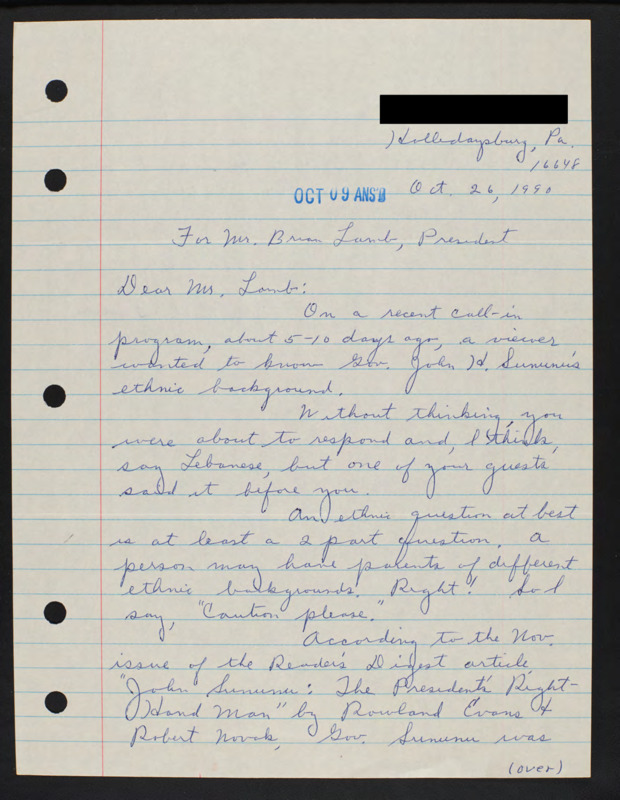 Hollidaysburg, Pa.
16648
OCT 09 ANS'D Oct. 26, 1990
For Mr. Brian Lamb, President
Dear Mr. Lamb:
On a recent call-in
program, about 5-10 days ago, a viewer
wanted to know Gov. John H. Sununu's
ethnic background.
Without thinking, you
were about to respond and, I think,
say Lebanese, but one of your guests
said it before you.
An ethnic question at best
is at least a 2 part question. A
person may have parents of different
ethnic backgrounds. Right! So I
say, "Caution please."
According to the Nov.
issue of the Reader's Digest article
"John Sununu: The President's Right-
Hand Man" by Rowland Evans &
Robert Novak, Gov. Sununu was
(over)